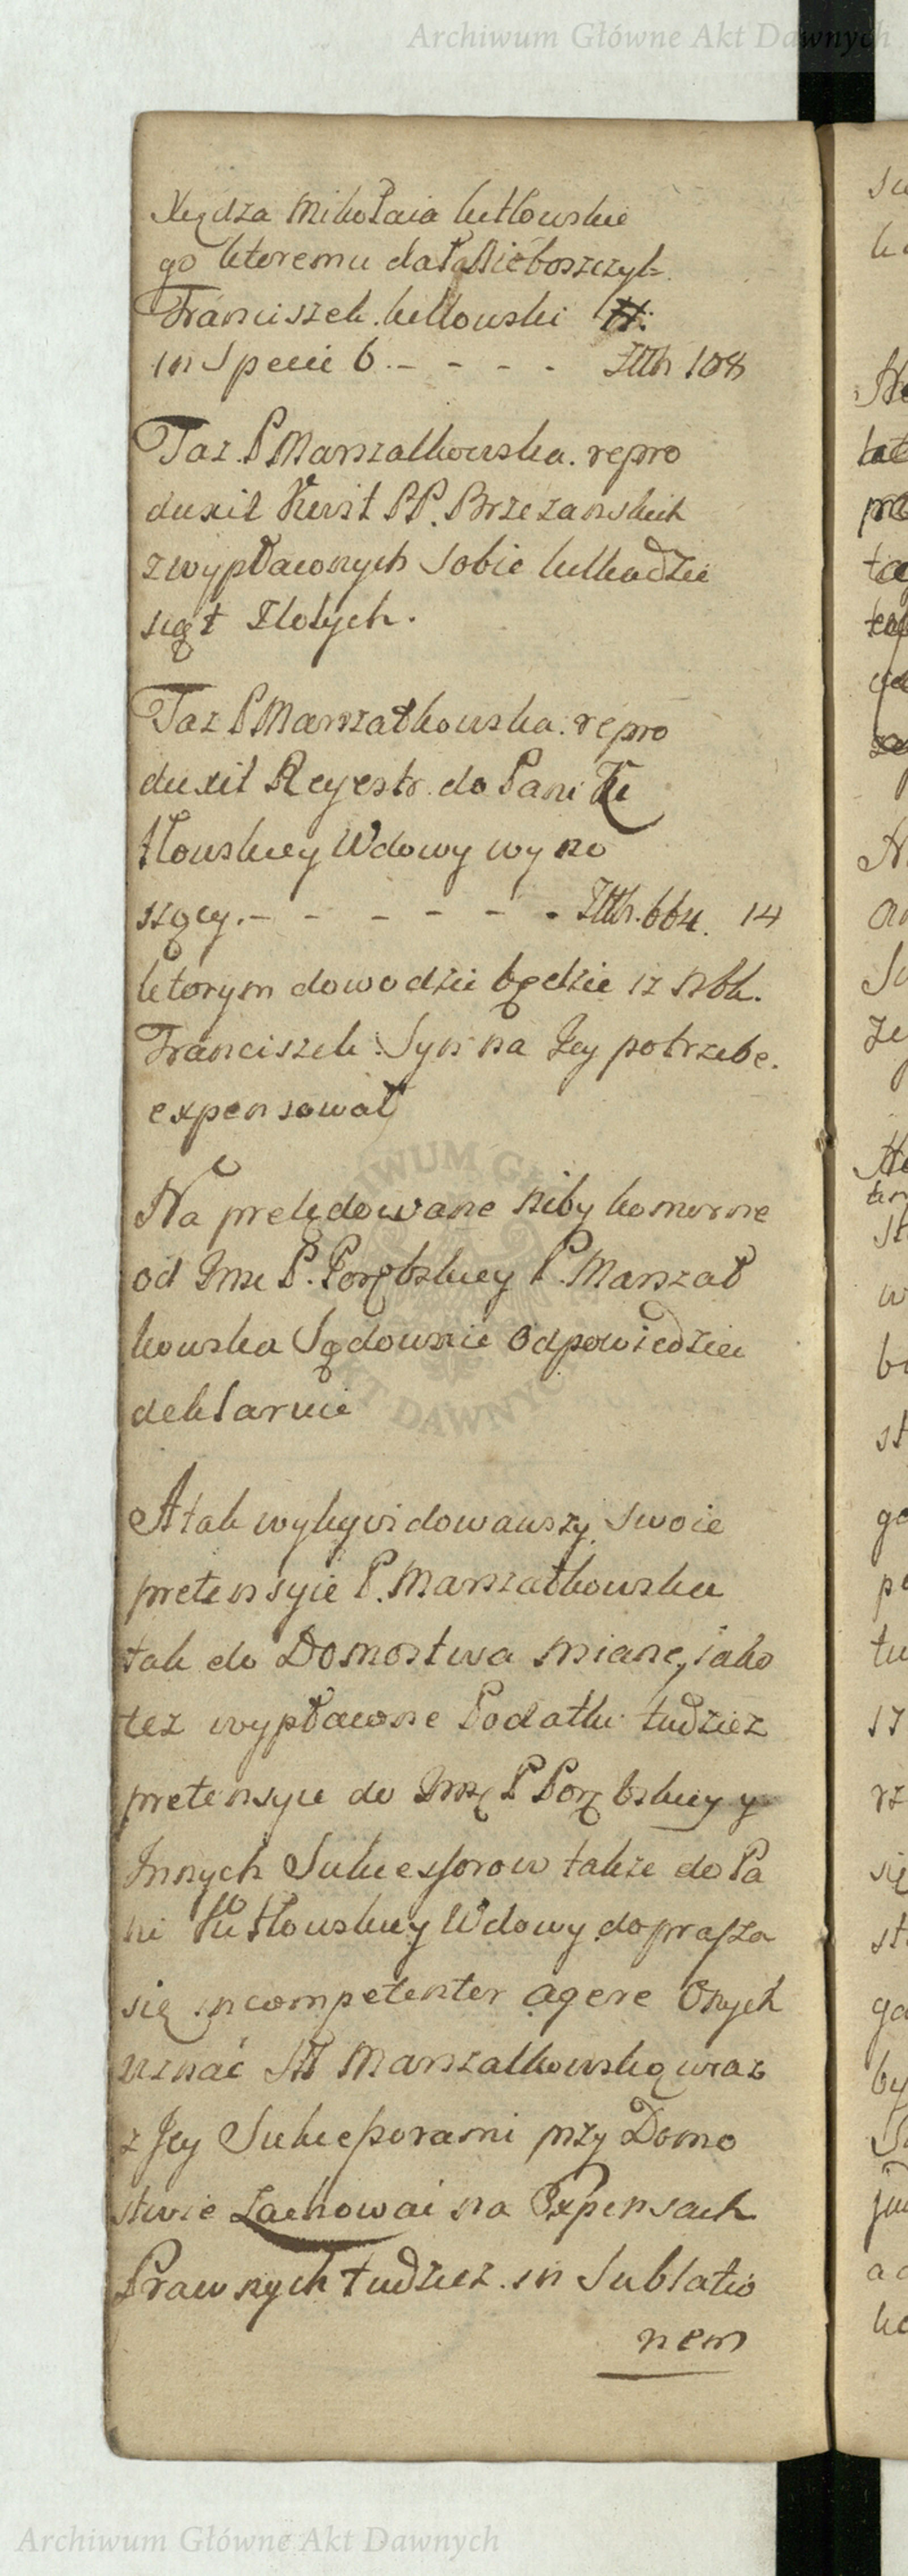 Archiwum Główne Akt Dawnych
Xiędza Mikołaia kutłowskie
go ktoremu dał Nieboszczyk
Franciszek kutłowski #:
in Specie 6. - - - - Złłh 108
Taz P Marszałkowska. repro
duxit Kwit PP. Brzezanskich
z wypłaconych sobie kilkadzie
siąt Złotych.
Taz P Marszałkowska. repro
duxit Reyestr. do Pani Ku
tłowskiey Wdowy wyno
szący. - - - - - - Złłh. 664. 14
ktorym dowodzic będzie iz Nbk.
Franciszek Syn na Jey potrzebe.
expensował
Na pretędowane niby komorne
od Jmc P. Porębskiey P. Marszał
kowska Sądownie odpowiedziec
deklaruie
A tak wylikwidowawszy swoie
pretensyie P. Marszałkowska
tak do Domostwa miane, iako
tez wypłacone Podatki tudziez
pretensyie do Jmc P Porębskiey y
Innych Sukcessorow takze do Pa
ni Kutłowskiey Wdowy doprasza
się incompetenter agere Onych
uznać Marszałkowską wraz
z Jey Sukcessorami przy Domo
stwie Zachować na Expensach
Prawnych tudziez in Sublatio
nem
Archiwum Główne Akt Dawnych